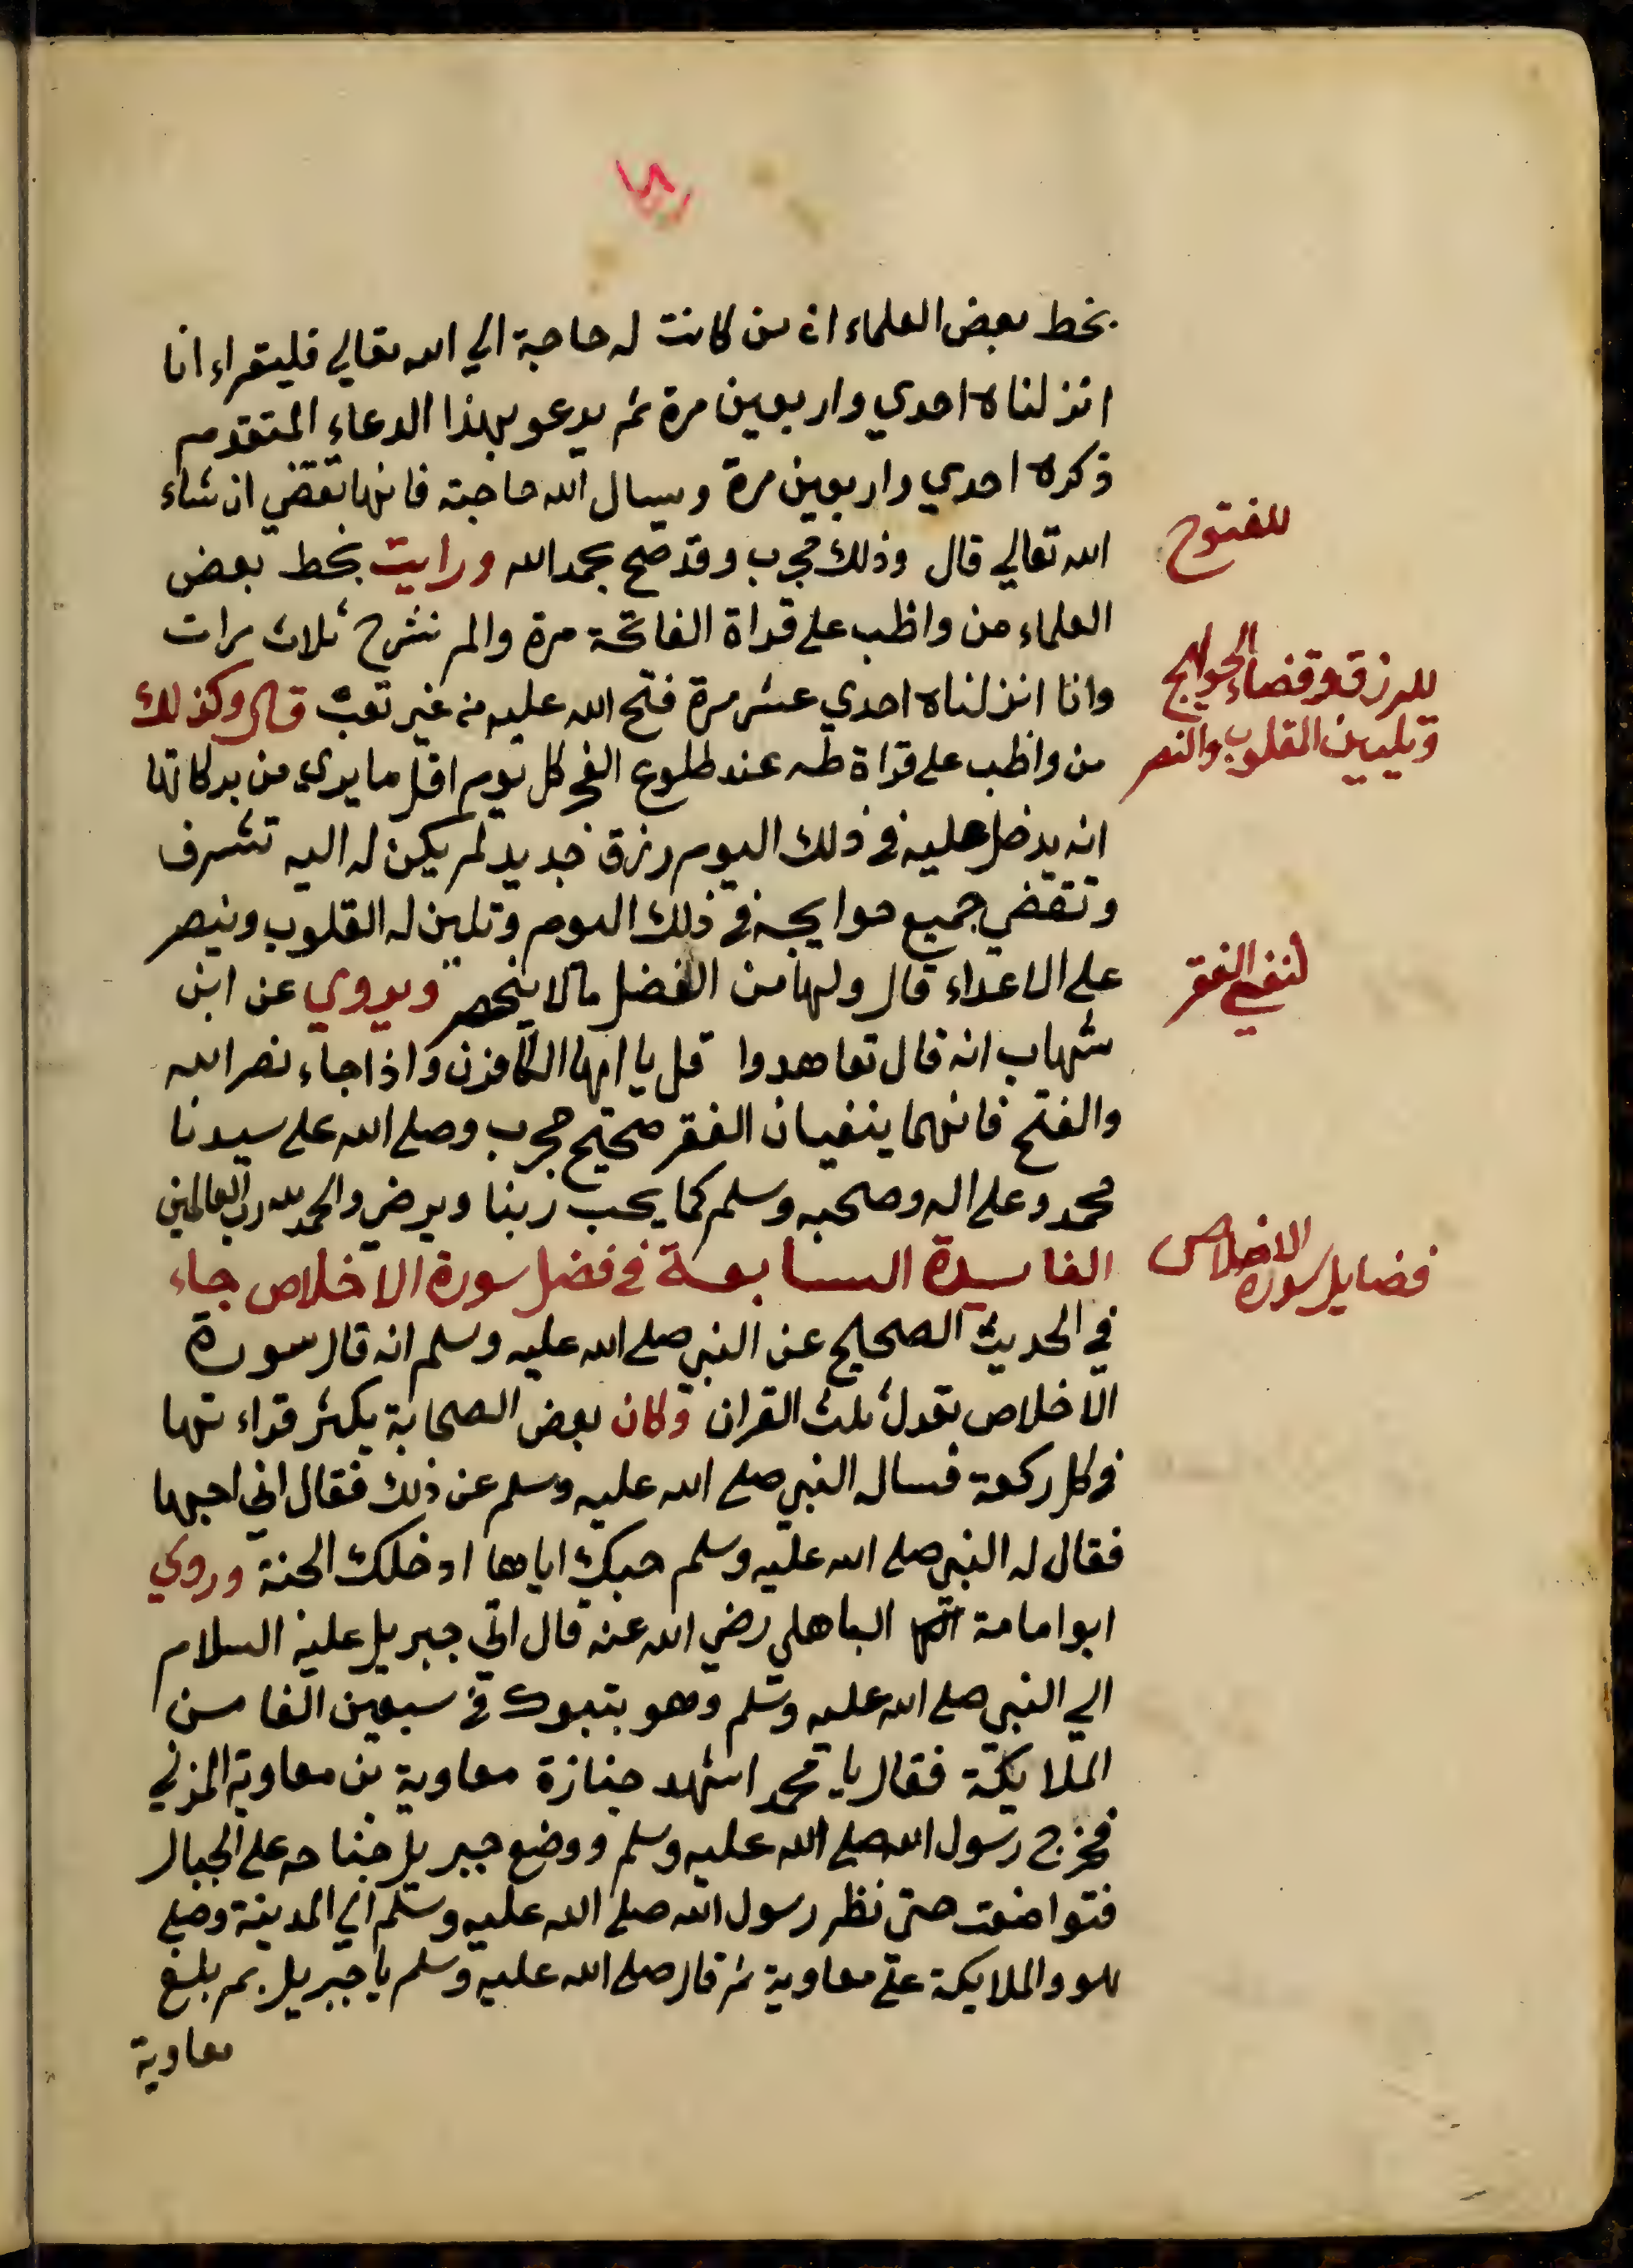 بخط بعض العلماء ان من كانت له حاجة الي الله تعالي فليقراء انا
انزلناه احدي واربعين مرة ثم يدعو بهذا الدعاء المتقدم
ذكره احدي واربعين مرة ويسال الله حاجته فانها تقضي ان شاء
الله تعالي قال وذلك مجرب وقد صح بحمد الله ورايت بخط بعض
للفتوح
العلماء من واظب علي قراة الفاتحة مرة والم نشرح ثلاث مرات
وانا انزلناه احدي عشر مرة فتح الله عليه من غير تعب قال وكذلك
للرزق وقضاء الحوايج
وتليين القلوب والنصر
من واظب علي قراة طه عند طلوع الفجر كل يوم اقل ما يري من بركاتها
انه يدخل عليه في ذلك اليوم رزق جديد لم يكن له اليه تشرف
وتقضي جميع حوايجه في ذلك اليوم وتلين له القلوب وينصر
علي الاعداء قال ولها من الفضل مالا ينحصر ويروي عن ابن
لنفي الفقر
شهاب انه قال تعاهدوا قل يا ايها الكافرن واذا جاء نصر الله
والفتح فانهما ينفيان الفقر صحيح مجرب وصلي الله علي سيدنا
محمد وعلي اله وصحبه وسلم كما يحب ربنا ويرضي والحمد لله رب العالمين
الفايدة السابعة في فضل سورة الاخلاص جاء
فضايل سورة الاخلاص
في الحديث الصحيح عن النبي صلي الله عليه وسلم انه قال سورة
الاخلاص تعدل ثلث القران وكان بعض الصحابة يكثر قراءتها
في كل ركعة فساله النبي صلي الله عليه وسلم عن ذلك فقال اني احبها
فقال له النبي صلي الله عليه وسلم حبك اياها ادخلك الجنة وروي
ابوامامة الباهلي رضي الله عنه قال اتي جبريل عليه السلام
الي النبي صلي الله عليه وسلم وهو بتبوك في سبعين الفا من
الملايكة فقال يا محمد اشهد جنازة معاوية بن معاوية المزني
فخرج رسول الله صلي الله عليه وسلم ووضع جبريل جناحه علي الجبال
فتواضعت حتي نظر رسول الله صلي الله عليه وسلم الي المدينة وصلي
هو والملايكة علي معاوية ثم قال صلي الله عليه وسلم يا جبريل بم بلغ
معاوية